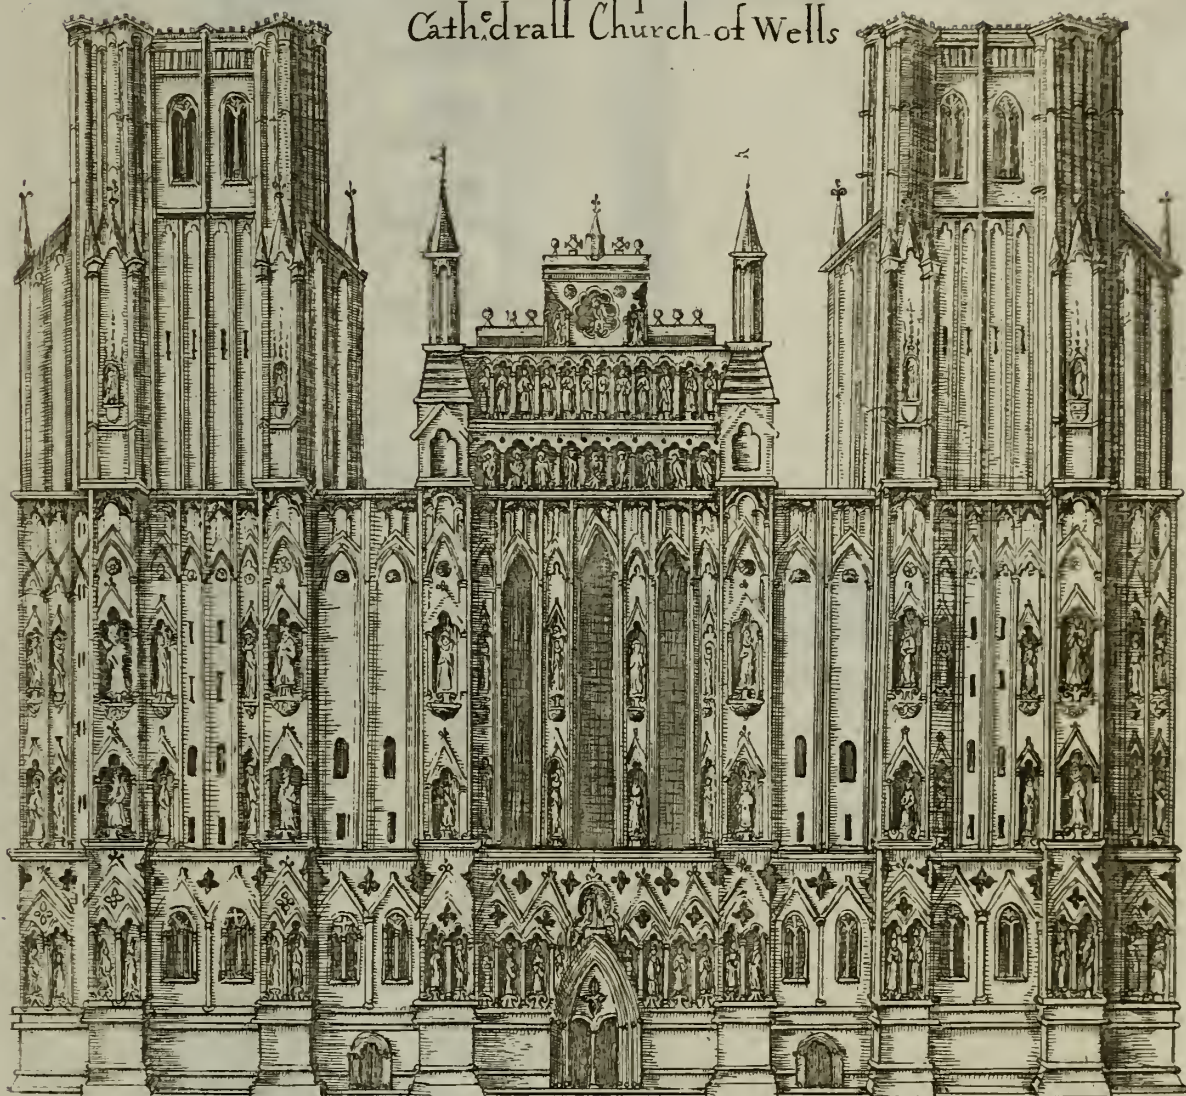 Cathedrall Church of Wells